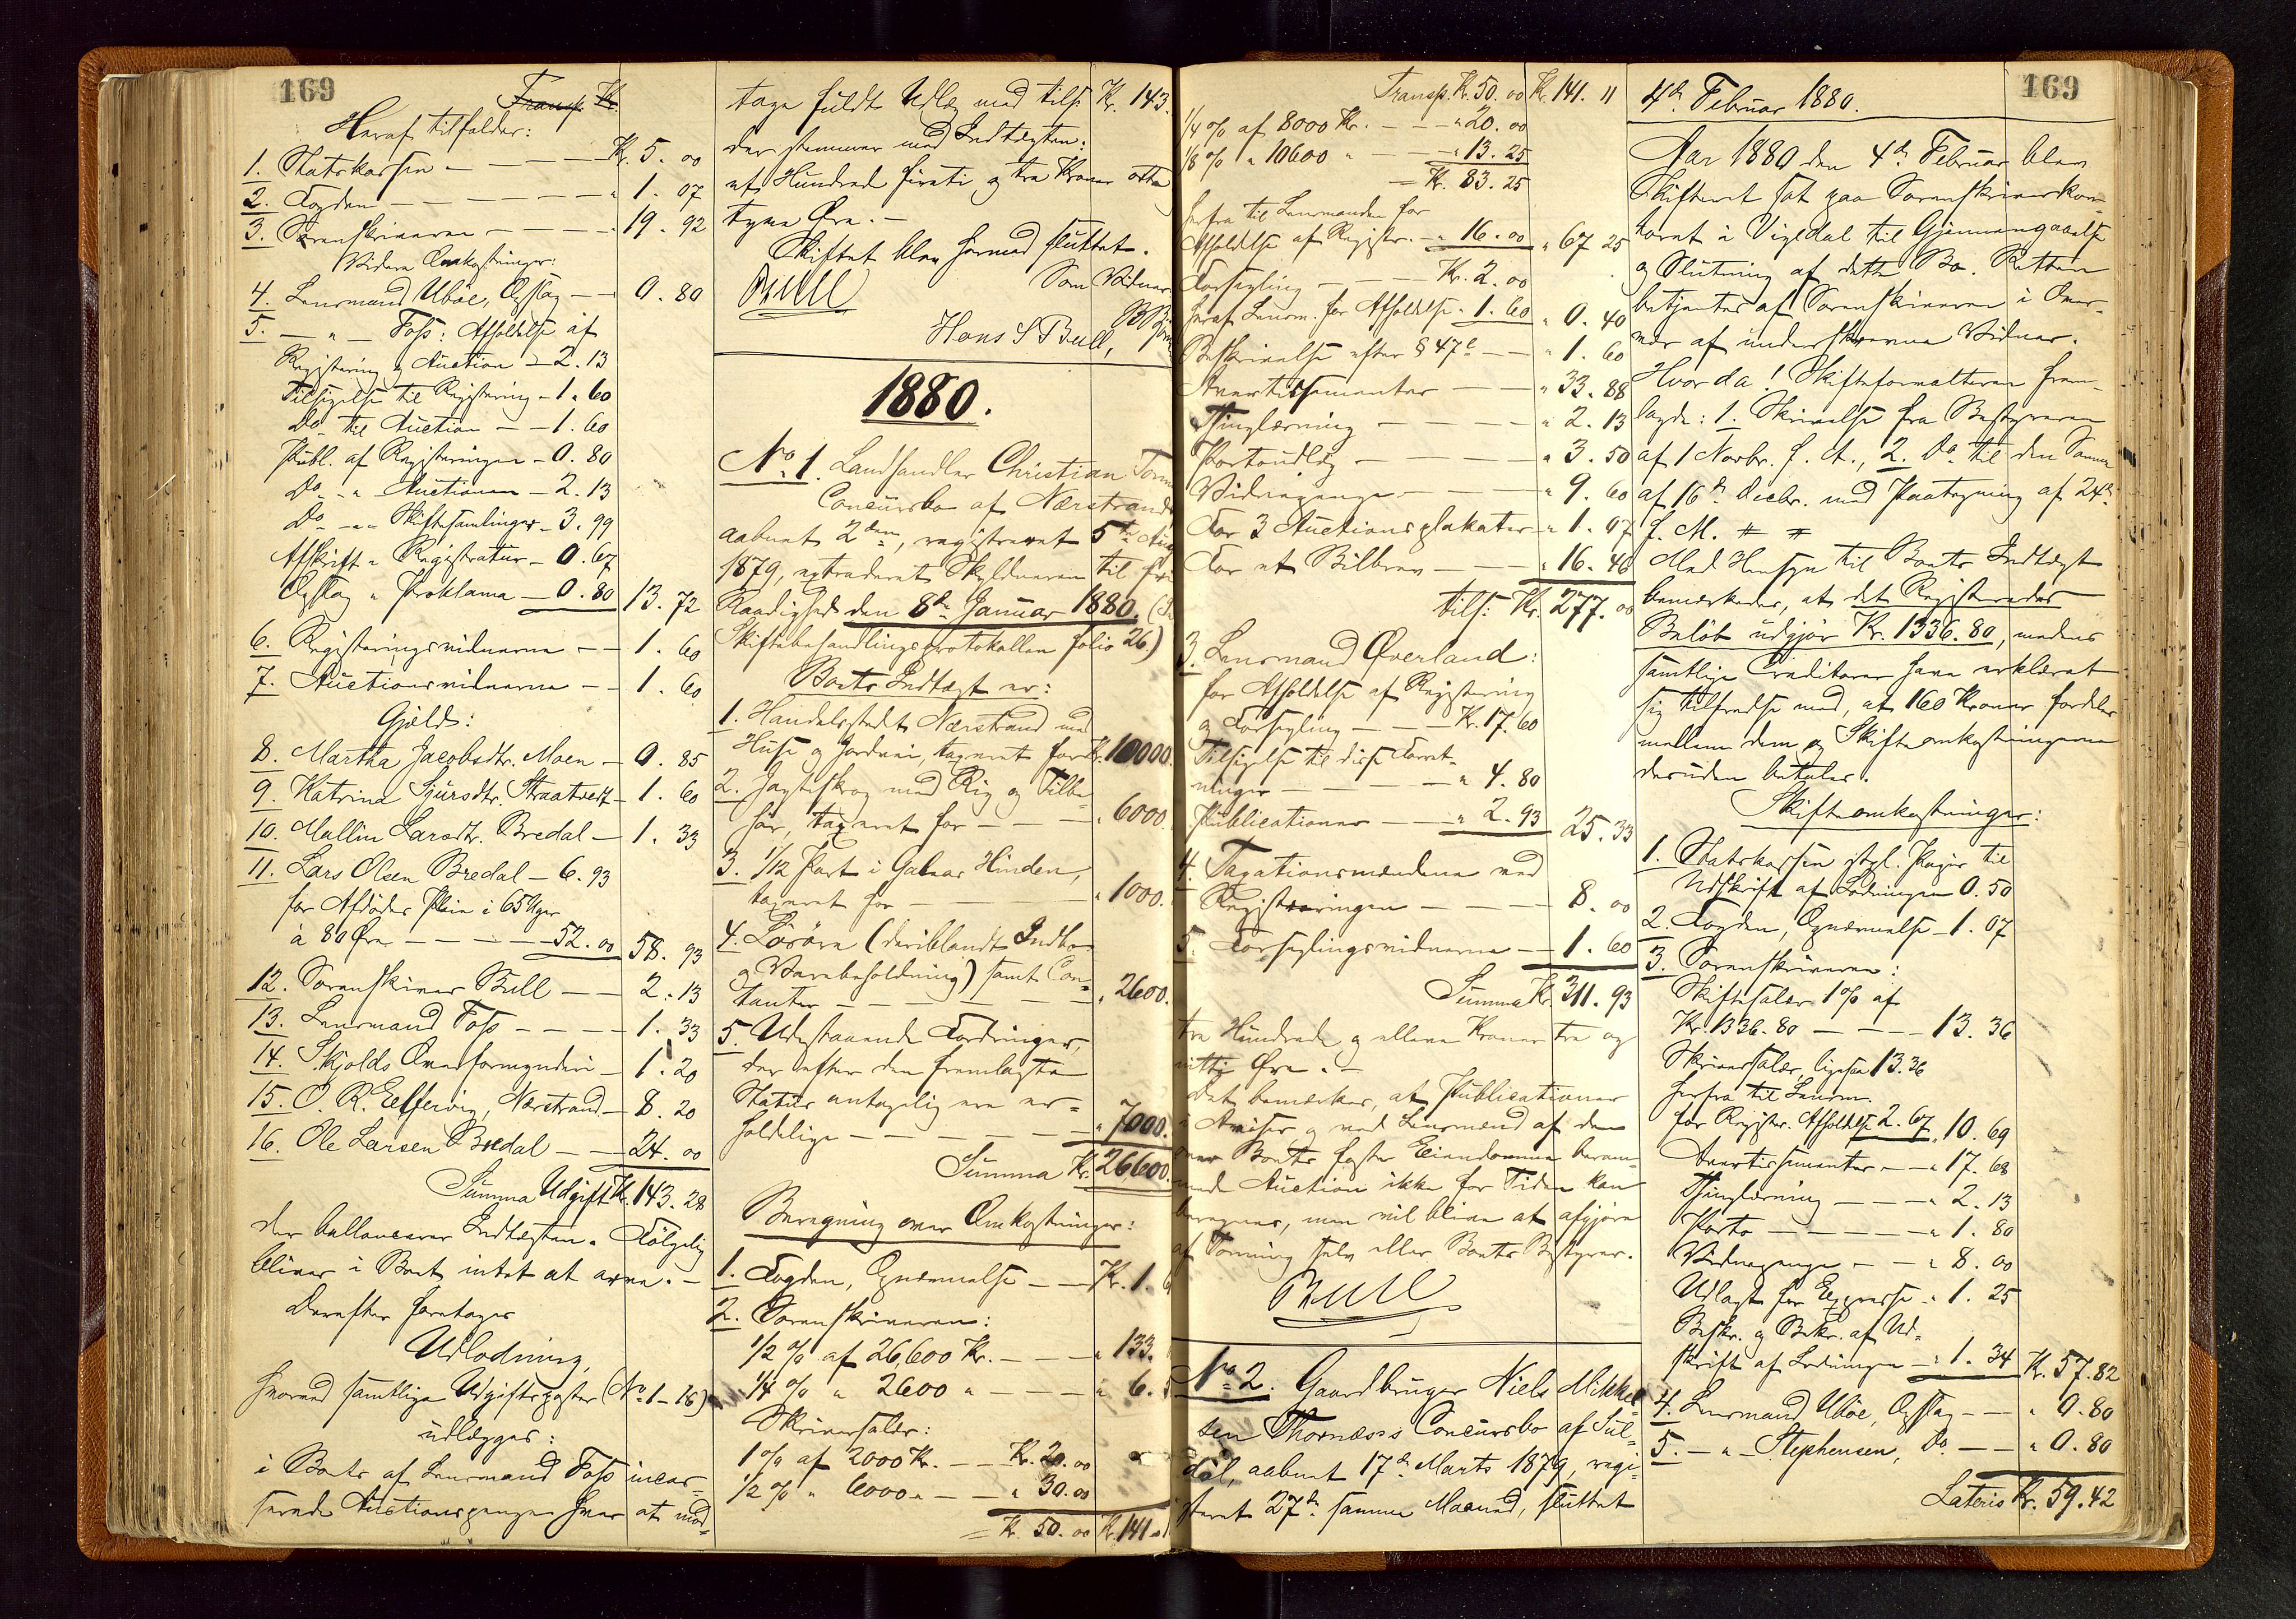 169
Transp. Kr.
Heraf tilfalder:
1. Statskassen — Kr. 5.00
2. Fogden — " 1.07
3. Sorenskriveren — " 19.92
Videre Omkostninger:
4. Lensmand Ubøe, Opslag — 0.80
5. — " — Foss: Afholdelse af
Registering & Auction — 2.13
Tilsigelse til Registering — 1.60
Do til Auction — 1.60
Publ. af Registeringen — 0.80
Do — " Auctionen — 2.13
Do — " Skiftesamlinger — 3.99
Afskrift " Registratur — 0.67
Opslag " Proklama — 0.80 13.72
6. Registeringsvidnerne — 1.60
7. Auctionsvidnerne — 1.60
Gjæld:
8. Martha Jacobsdtr. Moen — 0.85
9. Katrina Sjursdtr. Straatveit — 1.60
10. Mallin Larsdtr. Bredal — 1.33
11. Lars Olsen Bredal — 6.93
for Afdødes Pleie i 65 Uger
à 80 Øre — 52.00 58.93
12. Sorenskriver Bull — 2.13
13. Lensmand Foss — 1.33
14. Skjolds Overformynderi — 1.20
15. O. R. Elffersvig, Nærstrand — 8.20
16. Ole Larsen Bredal — 24.00
Summa Udgift Kr. 143.28
der ballancerer Indtægten. Følgelig
bliver i Boet intet at arve. —
Derefter foretages
Udlodning,
hvorved samtlige Udgiftsposter (No 1–16)
udlægges:
i Boets af Lensmand Foss incas-
serede Auctionspenger hver at mod-
tage fuldt Udlæg med tils. Kr. 143.
der stemmer med Indtægten:
et Hundrede firti og tre Kroner otte
tyve Øre. —
Skiftet blev hermed sluttet.
Bull Som Vidner
Hans S Bull,
1880.
No 1. Landhandler Christian
Concursbo af Nærstrand
aabnet 2den, registreret 5te Aug
1879, extraderet Skyldneren til fri
Raadighed den 8de Januar 1880. (Se
Skiftebehandlingsprotokollen folio 26)
Boets Indtægt er:
1. Handelsstedet Nærstrand med
Huse og Jordvei, taxeret for Kr. 10000.
2. Jagteskrog med Rig og Tilbe-
hør, taxeret for — " 6000.
3. 1/12 Part i Galeas Hinden,
taxeret for — " 1000.
4. Løsøre (deriblandt Indbo
og Varebeholdning) samt Con-
tanter — " 2600.
5. Udestaaende Fordringer,
der efter den fremlagte
Status antagelig ere er-
holdelige — " 7000.
Summa Kr. 26,600.
Beregning over Omkostninger:
1. Fogden, Opnævnelse — Kr. 1.
2. Sorenskriveren:
1/2 % af 26,600 Kr. — " 133.
1/4 % " 2600 " — " 6.
Skriversalær:
1 % af 2000 Kr. — Kr. 20.00
1/2 % " 6000 " — " 30.00
= Kr. 50.00 Kr. 141.
Transp. Kr. 50.00 Kr. 141.11
1/4 % af 8000 Kr. — " 20.00
1/8 % " 10600 " — " 13.25
= Kr. 83.25
herfra til Lensmanden for
Afholdelse af Registr. — " 16.00 " 67.25
Forsegling — Kr. 2.00
heraf Lensm. for Afholdelse " 1.60 " 0.40
Beskrivelse efter § 47 c — " 1.60
Avertissementer — " 33.88
Thinglæsning — " 2.13
Portoudlæg — " 3.50
Vidnepenge — " 9.60
For 3 Auctionsplakater " 1.07
For et Bilbrev — " 16.46
tils: Kr. 277.00
3. Lensmand Øverland:
for Afholdelse af Registering
og Forsegling — Kr. 17.60
Tilsigelse til disse Forret-
ninger — " 4.80
Publicationer — " 2.93 25.33
4. Taxationsmændene ved
Registeringen — 8.00
5. Forseglingsvidnerne — 1.60
Summa Kr. 311.93
tre Hundrede og elleve Kroner tre og
nitti Øre. —
Det bemærkes, at Publicationer
i Aviser og ved Lensmænd af den
over Boets faste Eiendomme beram-
mede Auction ikke for Tiden kan
beregnes, men vil blive at afgjøre
af Tonning selv eller Boets Bestyrer.
Bull
No 2. Gaardbruger Niels Mikkel-
sen Thornæs's Concursbo af Sul-
dal, aabnet 17de Marts 1879, regi-
streret 27de samme Maaned, sluttet
4de Februar 1880. 169
Aar 1880 den 4de Februar blev
Skifteret sat paa Sorenskriverkon-
toret i Vigedal til Gjennemgaaelse
og Slutning af dette Bo. Retten
betjentes af Sorenskriveren i Over-
vær af underskrevne Vidner.
Hvorda! Skifteforvalteren frem-
lagde: 1. Skrivelse fra Bestyreren
af 1 Novbr. f. A., 2. Do til den Samme
af 16de Decbr. med Paategning af 24de
f. M. # #
Med Hensyn til Boets Indtægt
bemærkedes, at det Registreredes
Beløb udgjør Kr. 1336.80, medens
samtlige Creditorer have erklæret
sig tilfredse med, at 160 Kroner fordeles
mellem dem og Skifteomkostningerne
desuden betales.
Skifteomkostninger:
1. Statskassen stpl. Papir til
Udskrift af Lodningen 0.50
2. Fogden, Opnævnelse — 1.07
3. Sorenskriveren:
Skiftesalær 1 % af
Kr. 1336.80 — 13.36
Skriversalær, ligesaa 13.36
herfra til Lensm.
for Register. Afholdelse 2.67 " 10.69
Avertissementer — " 17.68
Thinglæsning — " 2.13
Porto — " 1.80
Vidnepenge — " 8.00
Udlagt for Expresse " 1.25
Beskr. og Bekr. af Ud-
skrift af Lodningen — " 1.34 Kr. 57.82
4. Lensmand Ubøe, Opslag — " 0.80
5. — " — Stephensen, Do — " 0.80
Lateris Kr. 59.42